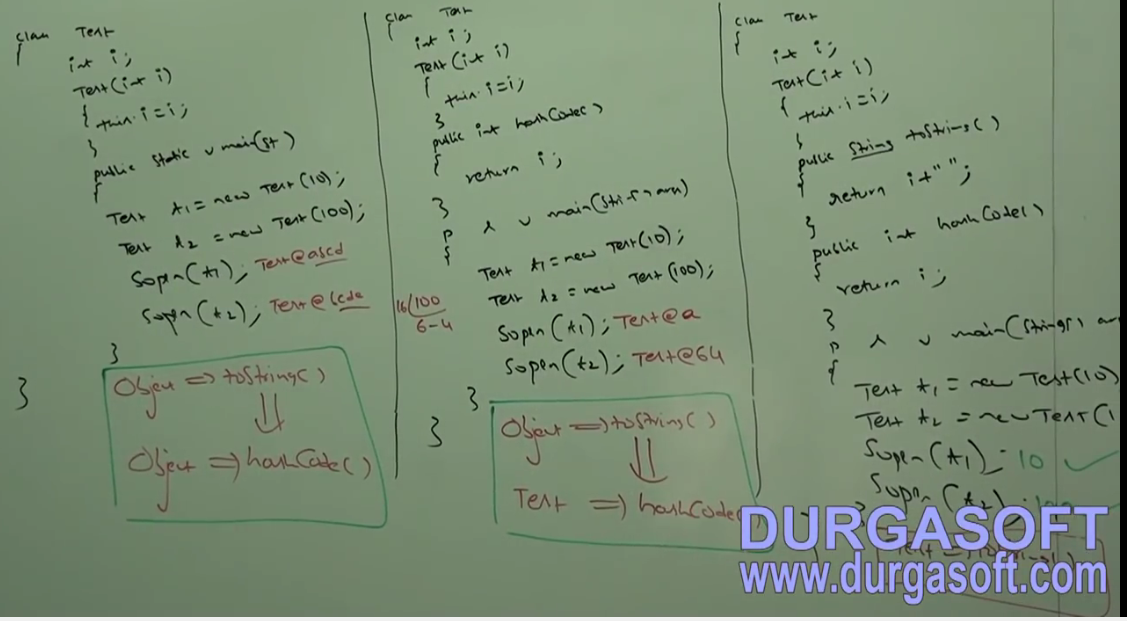 class Test
{
int i;
Test(int i)
{
this.i=i;
}
public static v main(St)
{
Test t1 = new Test(10);
Test t2 = new Test(100);
Sopln(t1); Test@abcd
Sopln(t2);
}
}
Object => toString()
Object => hashCode()
class Test
{
int i;
Test(int i)
{
this.i=i;
}
public int hashCode()
{
return i;
}
p s v main(String[] args)
{
Test t1 = new Test(10);
Test t2 = new Test(100);
16/100
6-4
Sopln(t1); Test@a
Sopln(t2); Test@64
}
}
Object => toString()
Test => hashCode()
class Test
{
int i;
Test(int i)
{
this.i=i;
}
public String toString()
{
return i+"";
}
public int hashCode()
{
return i;
}
p s v main(String[]
{
Test t1 = new Test(10)
Test t2 = new Test(1
Sopln(t1); 10 ✓
Sopln(t2);
DURGASOFT
www.durgasoft.com